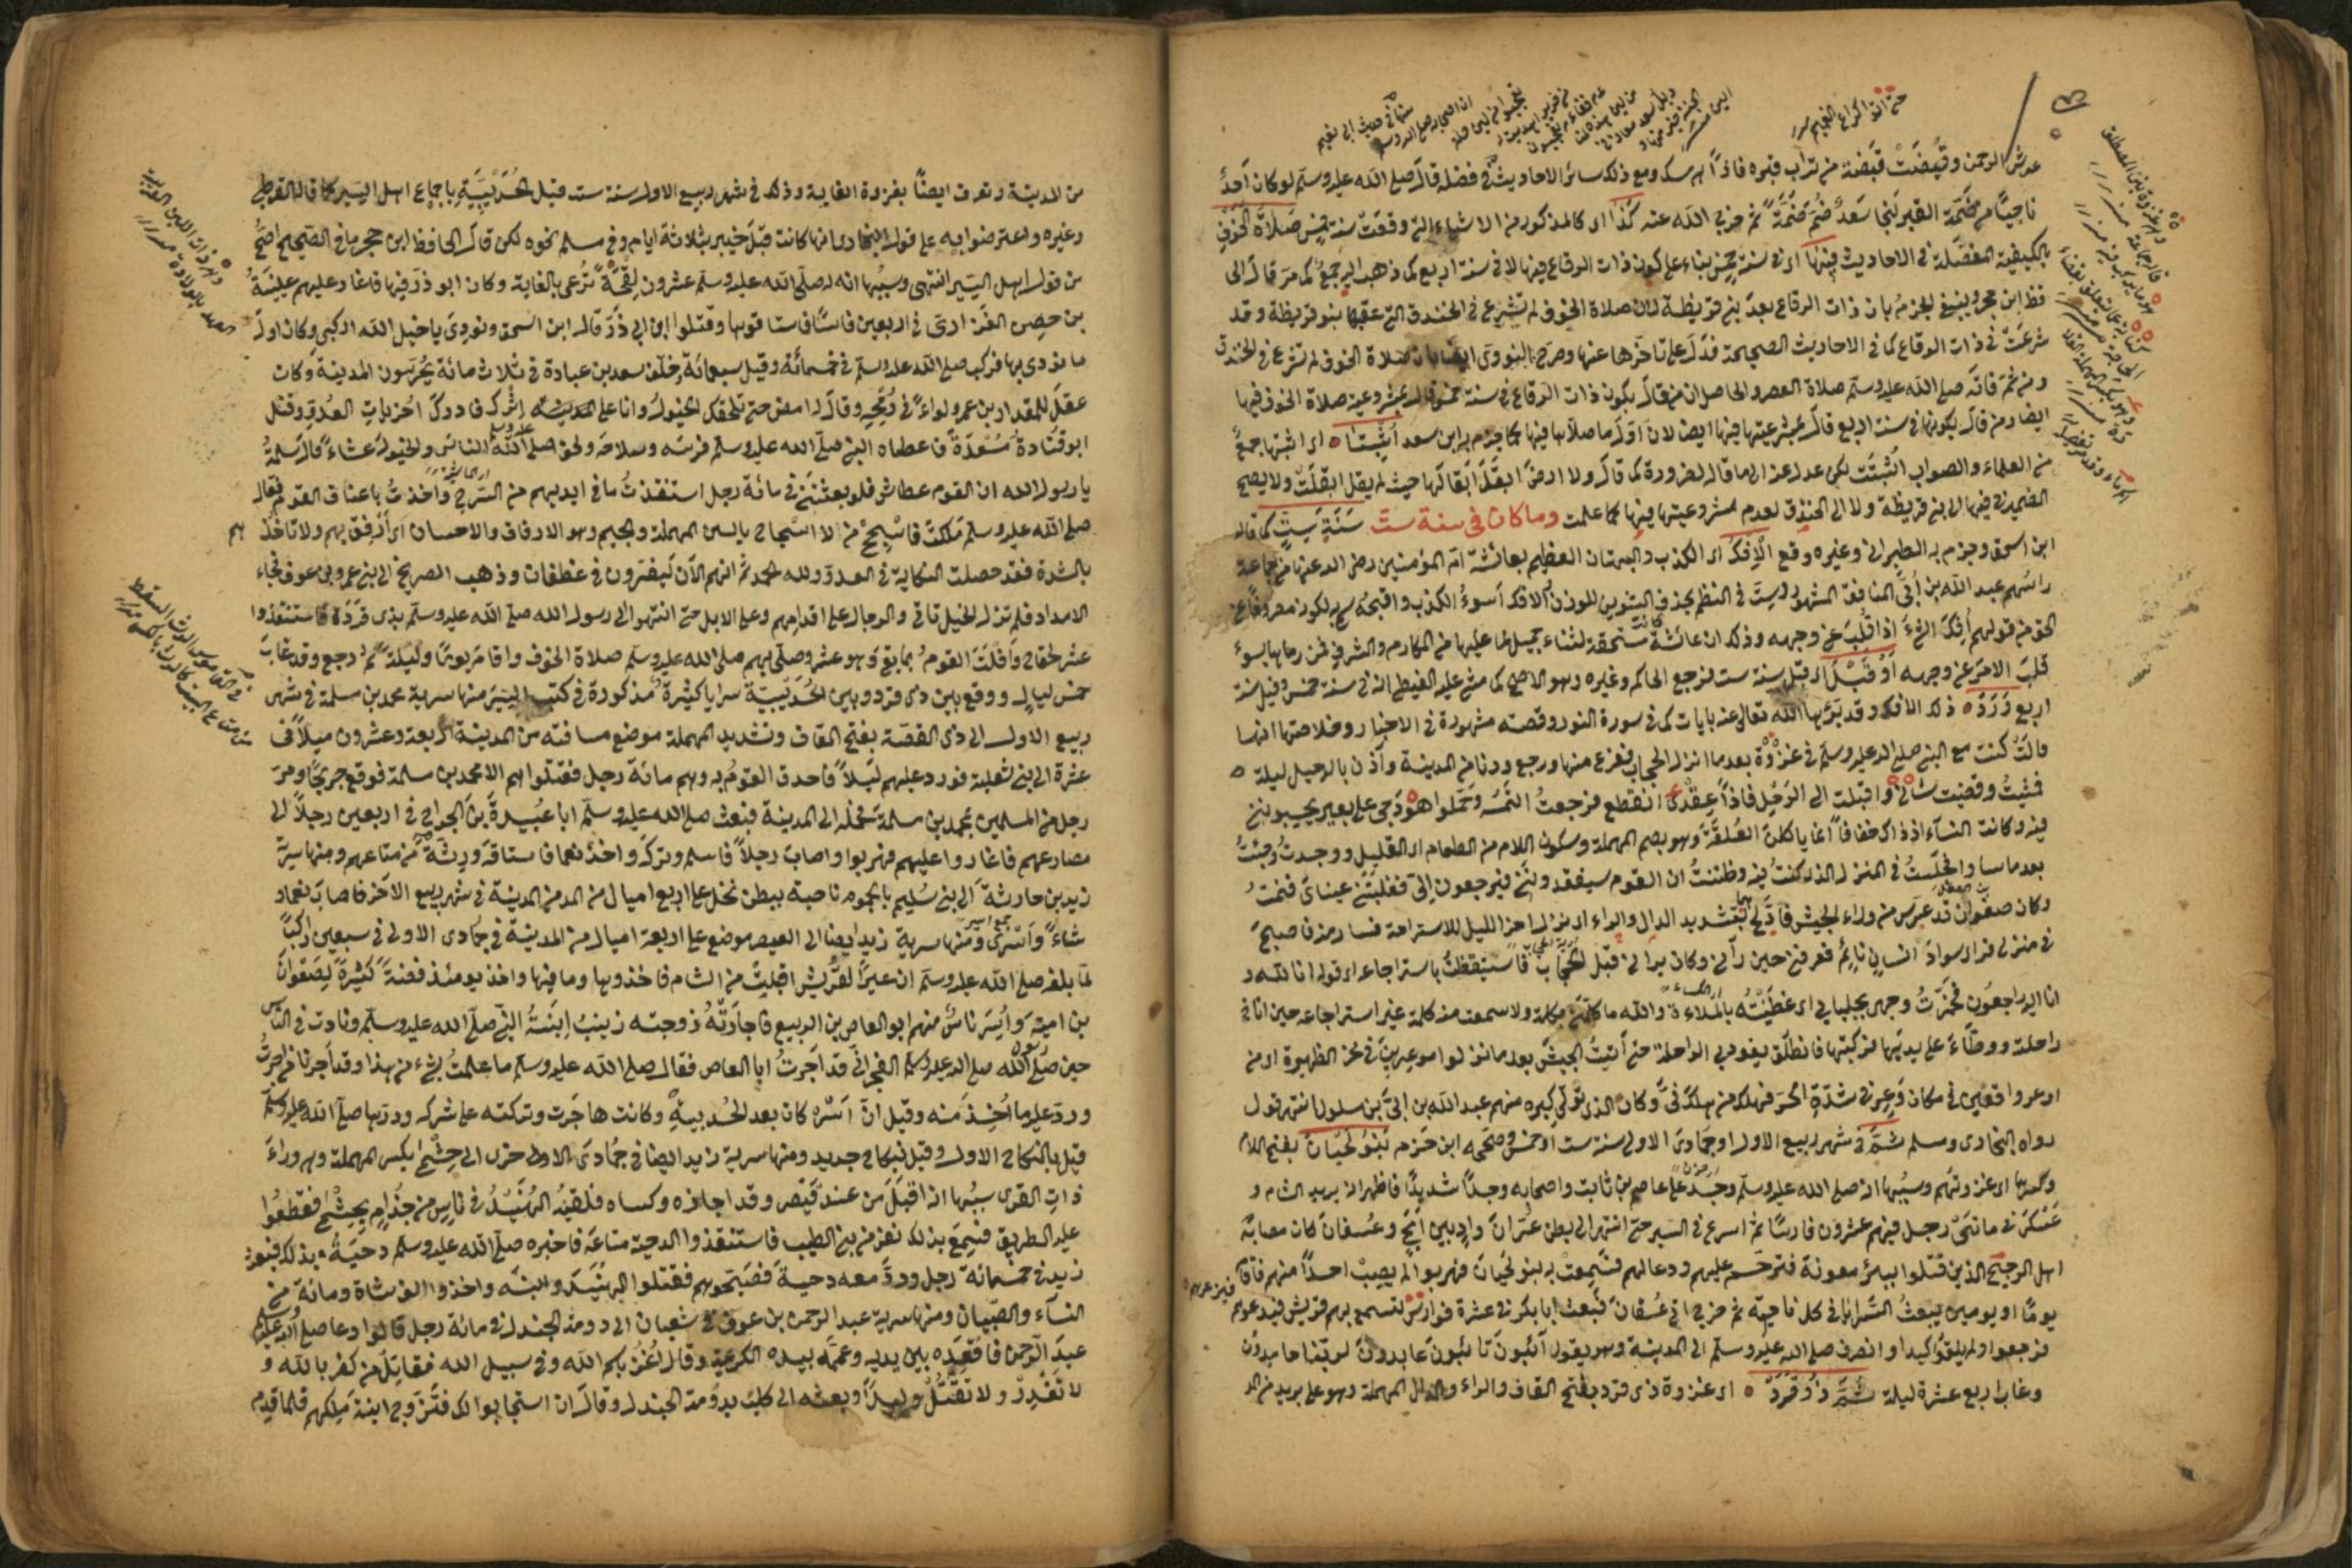 عرش الرحمن وقُبِضَتْ قبضة من تراب قبره فاذا هو مسك ومع ذلك سائر الاحاديث في فضله قال صلى الله عليه وسلم لو كان احدٌ
ناجيا من ضمّة القبر لنجا سعدٌ ضُمّ ضمّةً ثم فرج الله عنه كذا اى كالمذكور من الاشياء التى وقعت سنة خمس صلاة الخوف
بالكيفية المفصّلة فى الاحاديث فيها اى فى سنة خمس بناء على كون ذات الرقاع فيها لا فى سنة اربع كما ذهب اليه جمع كما مر قال الحا
فظ ابن حجر وينبغى الجزم بان ذات الرقاع بعد بنى قريظة لان صلاة الخوف لم تشرع فى الخندق التى عقبها بنو قريظة وقد
شرعت فى ذات الرقاع كما فى الاحاديث الصحيحة فدل على تاخرها عنها وصرح النووى ايضا بان صلاة الخوف لم تشرع فى الخندق
ومن ثم فاته صلى الله عليه وسلم صلاة العصر والحاصل ان من قال بكون ذات الرقاع فى سنة خمس قال بمشروعية صلاة الخوف فيها
ايضا ومن قال بكونها فى سنة اربع قال بمشروعيتها فيها ايضا لان اول ما صلاها فيها كما جزم به ابن سعد اثبتنا اى اثبتها جمع
من العلماء والصواب اثبتت لكن عدل عنه الى ما قاله لضرورة كما قال ولا ارض ابقل ابقالها حيث لم يقل ابقلت ولا يصح
الضمير فى فيها الى بنى قريظة ولا الى الخندق لعدم مشروعيتها فيها كما علمت وما كان فى سنة ست سنة ست كما قاله
ابن اسحق وجزم به الطبرانى وغيره وقع الافك اى الكذب والبهتان العظيم بعائشة ام المؤمنين رضى الله عنها من جماعة
راسهم عبد الله بن أُبَىّ المنافق المشهور وليست فى النظم بحذف التنوين للوزن الافك أسوءُ الكذب واقبحه سمى به لكونه معروفا عن
الحق من قولهم أُفِكَ الشىء اذا قلب عن وجهه وذلك ان عائشة كانت مستحقة لثناء جميل لما عليها من المكارم والشرف فمن رماها بسوء
قلب الامر عن وجهه أو قبل اى قبل سنة ست فرجع الحاكم وغيره وهو الاصح كما مشى عليه الغيطى انه فى سنة خمس وقيل سنة
اربع ذلك الافك وقد برّأها الله تعالى عنه بايات كما فى سورة النور وقصته مشهورة فى الاخبار وخلاصتها انها
قالت كنت مع النبى صلى الله عليه وسلم فى غزوة بعد ما انزل الحجاب ففرغ منها ورجع ودنا من المدينة وآذن بالرحيل ليلة
فمشيتُ وقضيت شانى واقبلت الى الرحل فاذا عقدى انقطع فرجعت التمسه وحملوا هودجى على بعير يحسبوننى
فيه وكانت النساء اذ ذاك خفافا انما ياكلن العُلْقَة وهو بضم المهملة وسكون اللام من الطعام اى القليل ووجدتُ وجئتُ
بعد ما سارا وجلستُ فى المنزل الذى كنت فيه وظننت ان القوم سيفقدوننى فيرجعون الىّ فغلبتنى عيناى فنمت
وكان صفوان قد عرس من وراء الجيش فادّلج بتشديد الدال والراء اى نزل اخر الليل للاستراحة فسار منه فاصبح
فى منزلى فراى سواد انسان نائم فعرفنى حين رآنى وكان يرانى قبل الحجاب فاستيقظت باستراجاعه اى قوله انا لله و
انا اليه راجعون فخمرت وجهى بجلبابى اى غطّيتُه بالمُلاءة والله ما كلمنى بكلمة ولا سمعت منه كلمة غير استراجاعه حين اناخ
راحلته ووطّأ على يديها فركبتها فانطلق يقود بى الراحلة حتى اتيت الجيش بعد ما نزلوا موغرين فى نحر الظهيرة اى من
اوعروا واقفين فى مكان وعر فى شدة الحر فهلك من هلك فىّ وكان الذى تولى كبره منهم عبد الله بن ابىّ بن سلول انتهى قول
رواه البخارى ومسلم ثمّ فى شهر ربيع الاول او جمادى الاولى سنة ست او خمس وصححه ابن حزم بنو لحيان بفتح اللام
وكسرها اى غزوتهم وسببها انه صلى الله عليه وسلم وجد على عاصم بن ثابت واصحابه وجدًا شديدًا فاظهر انه يريد الشام و
عسكر فى مائتى رجل فيهم عشرون فارسًا ثم اسرع فى السير حتى انتهى الى بطن غرّان وادٍ بين امج وعُسفان كان مصابه
اهل الرجيع الذين قتلوا ببئر معونة فترحم عليهم ودعا لهم فسمعت به بنو لحيان فهربوا لم يصب احدًا منهم فاقام
يومًا او يومين يبعثُ السَّرايا فى كل ناحية ثم خرج اتى عُسفان فبعث ابا بكر فى عشرة فوارس لتسمع بهم قريش فيذعرهم
فرجعوا ولم يلقوا كيدا وانصرف صلى الله عليه وسلم الى المدينة وهو يقول آئبون تائبون عابدون لربنا حامدون
وغاب اربع عشرة ليلة ثُمّ ذُو قَرَدْ اى غزوة ذى قرد بفتح القاف والراء والدال المهملة وهو على بريد من الد
من المدينة وتعرف ايضًا بغزوة الغابة وذلك فى شهر ربيع الاول سنة ست قبل الحُدَيبيَة باجماع اهل السير كما قاله القرطبى
وغيره واعترضوا به على قول البخارى انها كانت قبل خيبر بثلاثة ايام وفى مسلم نحوه لكن قال الحافظ ابن حجر ما فى الصحيح اصحُّ
من قول اهل السير انتهى وسببُها انه كان لصلى الله عليه وسلم عشرون لقحة تُرعى بالغابة وكان ابو ذر فيها فاغار عليهم عيينةُ
بن حصن الفزارى فى اربعين فارسًا فاستاقوها وقتلوا ابن ابى ذر قال ابن اسحق ونودى يا خيل الله اركبى وكان اول
ما نودى بها فركب صلى الله عليه وسلم فى خمسمائة وقيل سبعمائة وخلّف سعد بن عبادة فى ثلاث مائة يحرسون المدينة وكان
عقد للمقداد بن عمرو لواءً فى رمحه وقال له امض حتى تلحقك الخيول وانا على اثرك فادرك اخريات العدو وقتل
ابو قتادة مَسْعَدَةَ فاعطاه النبى صلى الله عليه وسلم فرسَه وسلاحه ولحق صلى الله عليه وسلم الناس والخيول عشاءً قال سلمةُ
يا رسول الله ان القوم عطاش فلو بعثتنى فى مائة رجل استنقذت ما فى ايديهم من السرح واخذت باعناق القوم فقال
صلى الله عليه وسلم مَلكتَ فاسْجِحْ من الاسجاح بالسين المهملة والجيم وهو الارفاق والاحسان اى ارفق بهم ولا تاخذهم
بالشدة فقد حصلت النكاية فى العدو ولله الحمد ثم انهم الآن ليقرون فى غطفان وذهب الصريخ الى بنى عمرو بن عوف فجاء
الامداد فلم تزل الخيل تاتى والرجال على اقدامهم وعلى الابل حتى انتهوا الى رسول الله صلى الله عليه وسلم بذى قَرَد فاستنقذوا
عشر لقاح وافلت القوم بما بقى وهو عشر وصلى بهم صلى الله عليه وسلم صلاة الخوف واقام يومًا وليلةً ثم رجع وقد غاب
خمس ليالٍ ووقع بين ذى قرد وبين الحُديبيّة سرايا كثيرة مذكورة فى كتب السير منها سرية محمد بن سلمة فى شهر
ربيع الاول الى ذى القصّة بفتح القاف وتشديد المهملة موضع مسافته من المدينة اربعة وعشرون ميلاً فى
عشرة الى بنى ثعلبة فورد عليهم ليلاً فاحدق القوم به وهم مائة رجل فقتلوا هم الا محمد بن سلمة فوقع جريحًا ومر
رجل من المسلمين بمحمد بن سلمة فحمله الى المدينة فبعث صلى الله عليه وسلم ابا عبيدة بن الجراح فى اربعين رجلاً الى
مصارعهم فاغاروا عليهم فهربوا واصاب رجلاً فاسلم وتركه واخذ نعما فاستاقه ورِثّةً من متاعهم ومنها سرية
زيد بن حارثة الى بنى سُليم بالجموم ناحية ببطن نخل على اربع اميال من المدينة فى شهر ربيع الاخر فاصاب نعما و
شاءً وأسرى ومنها سرية زيد ايضا الى العيص موضع على اربعة اميال من المدينة فى جمادى الاولى فى سبعين راكبًا
لما بلغه صلى الله عليه وسلم ان عيرًا لقريش اقبلت من الشام فاخذوها وما فيها واخذ يومئذ فضةً كثيرةً لصفوان
بن امية وأُسِر ناسٌ منهم ابو العاص بن الربيع فاجارَتْهُ زوجته زينبُ ابنة النبى صلى الله عليه وسلم ونادت فى الناس
حين صلى الله عليه وسلم الفجر انى قد اجرتُ ابا العاص فقال صلى الله عليه وسلم ما علمتُ بشىء من هذا وقد اجرنا من اجرتِ
ورد عليه ما اُخِذ منه وقيل ان اسْره كان بعد الحُديبية وكانت هاجَرت وتركته على شركه وردها صلى الله عليه وسلم
قيل بالنكاح الاول وقيل بنكاح جديد ومنها سرية زيد ايضا فى جمادى الاولى الى حِسْمى بكسر المهملة وهى وراءَ
ذات القرى سببُها انه اقبل من عند قيصر وقد اجازه وكساه فلقيه الهُنيدُ فى ناس من جُذام بحسمى فقطعُوا
عليه الطريق فسمع بذلك نفر من بنى الضبيب فاستنقذوا لدحية متاعه فاخبره صلى الله عليه وسلم دحية بذلك فبعث
زيد فى خمسمائة رجل وردّ معه دحيةَ فصبحوهم فقتلوا الهُنيدَ وابنه واخذوا الف شاة ومائة من
النساء والصبيان ومنها سرية عبد الرحمن بن عوف فى شعبان الى دومة الجندل فى مائة رجل قالوا دعا صلى الله عليه وسلم
عبدَ الرحمن فاقعده بين يديه وعممه بيده الكريمة وقال اُغْزُ باسم الله وفى سبيل الله فقاتِلْ من كفر بالله و
لا تَغْدِرْ ولا تقتُلْ وليدًا وبعثه الى كلب بدومة الجندل وقال ان استجابوا لك فتزوج ابنة ملكهم فلما قدم